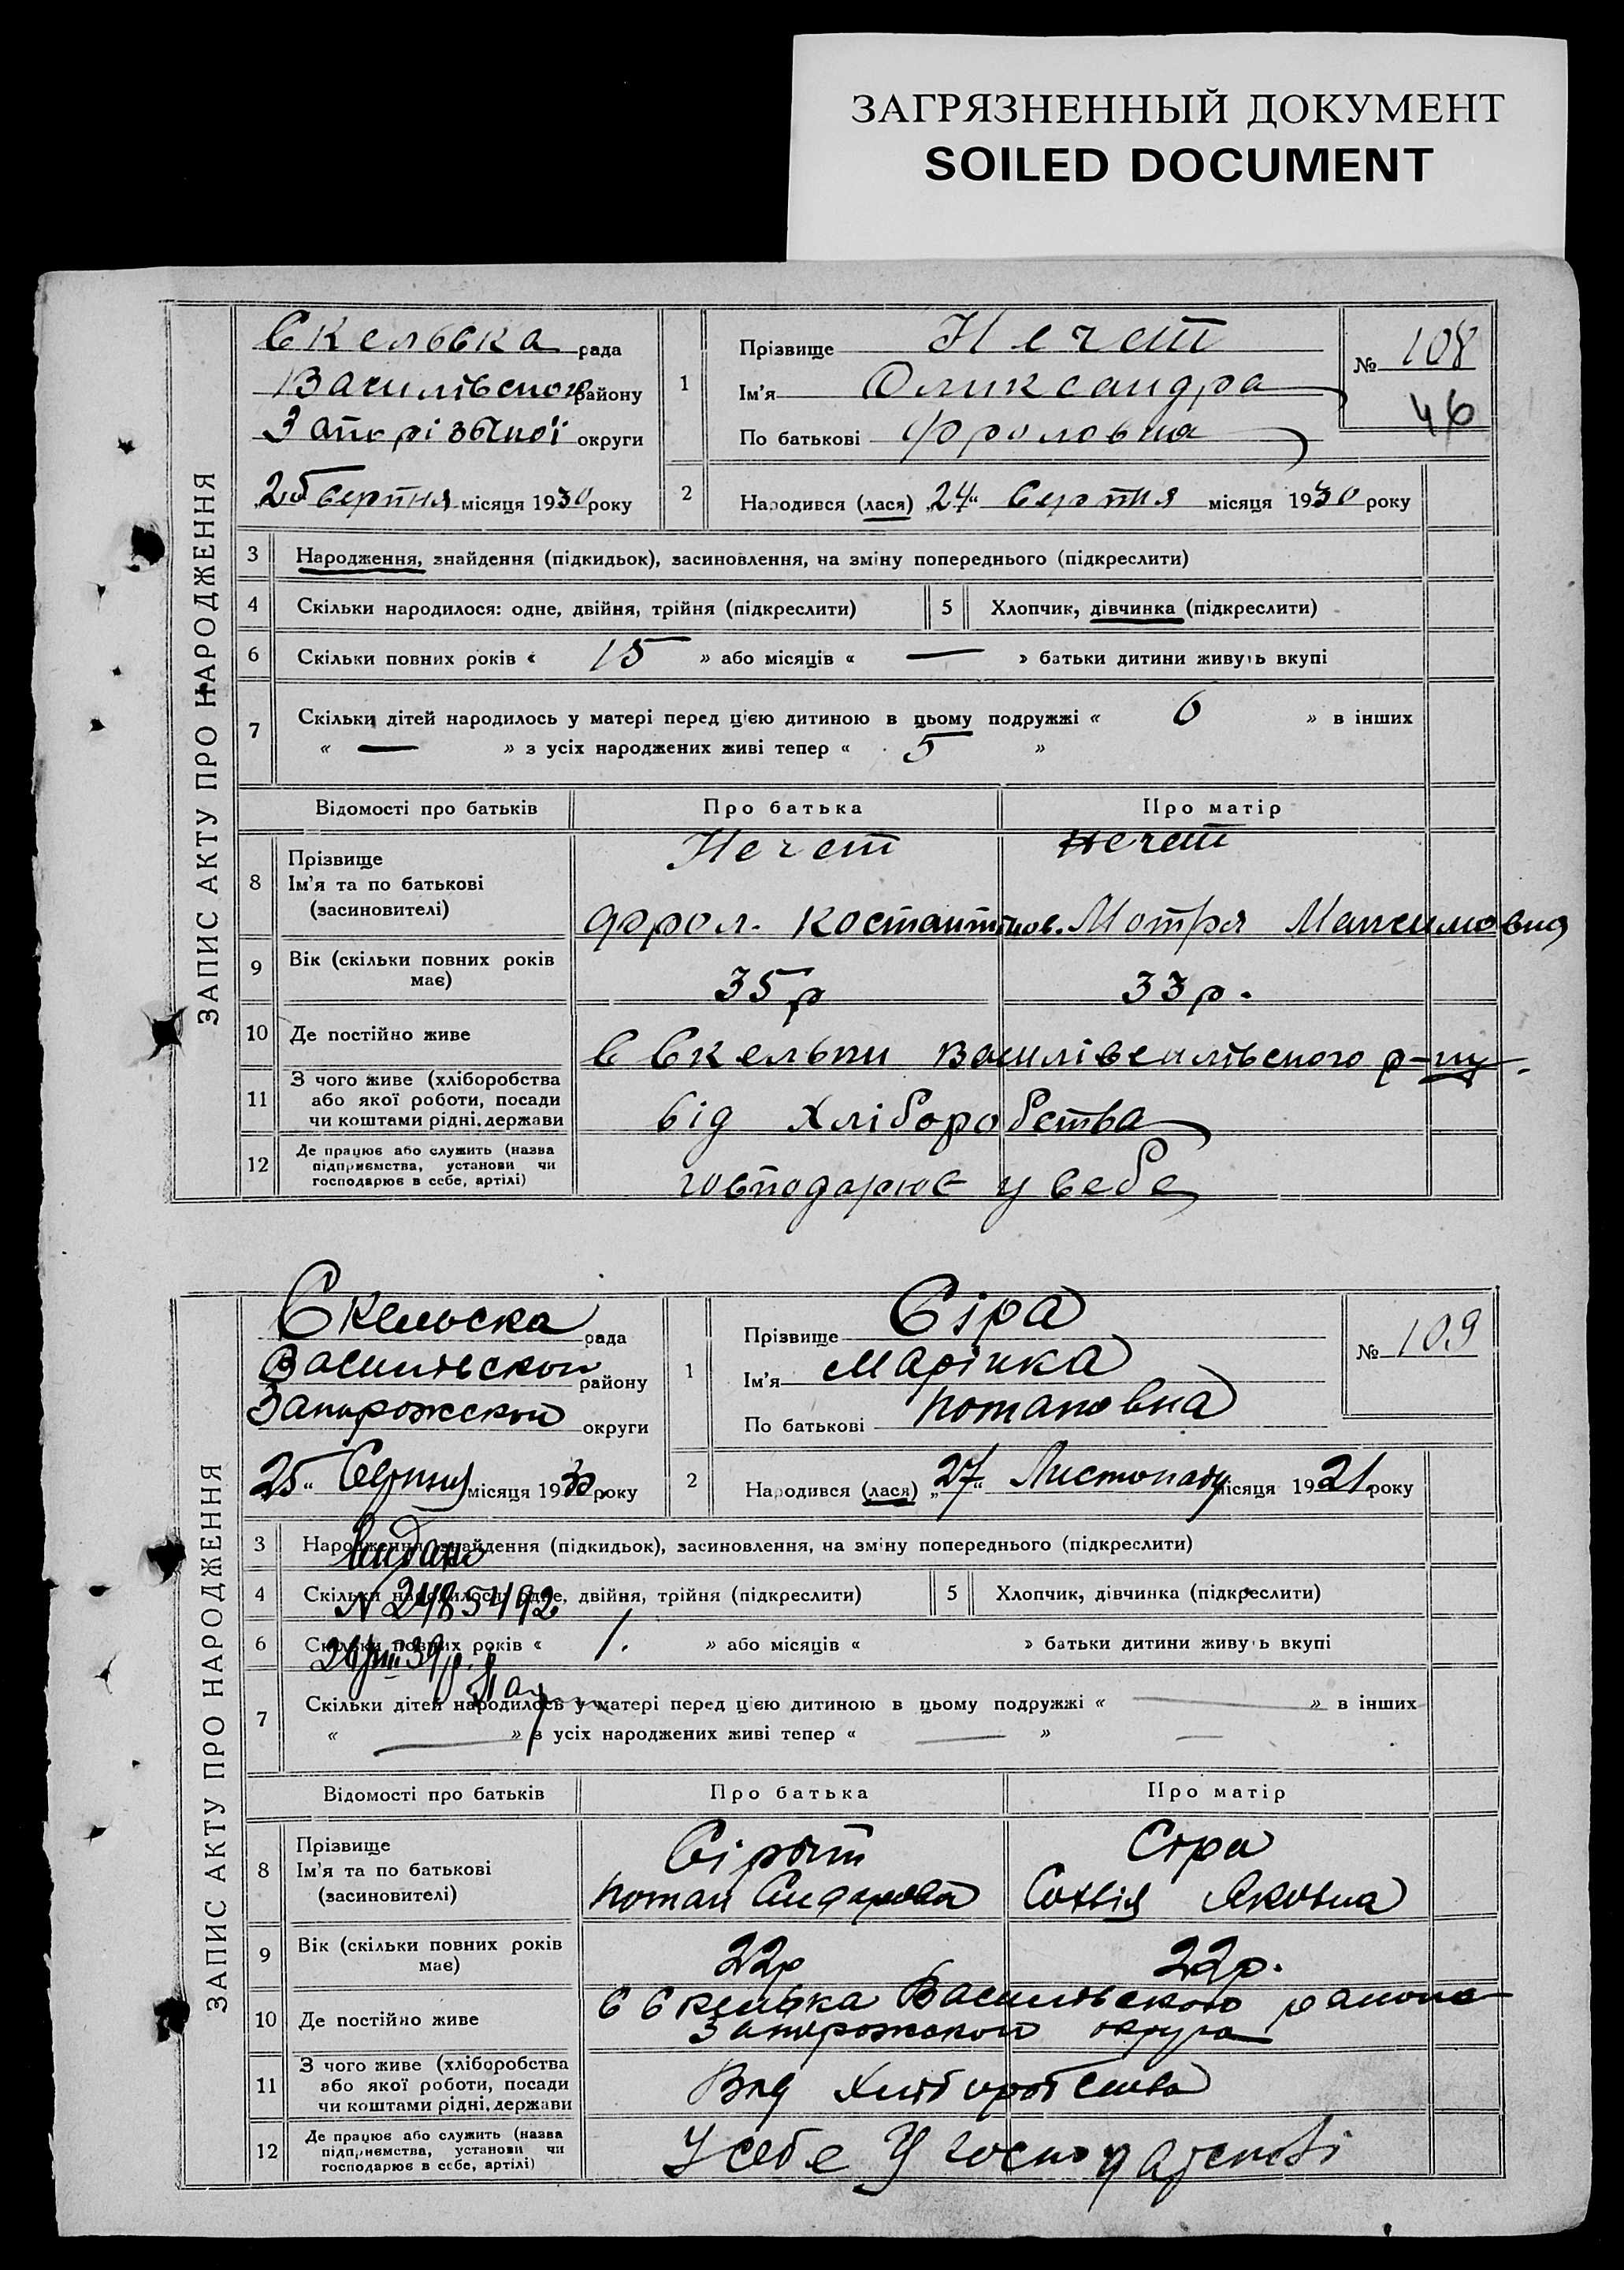 ЗАГРЯЗНЕННЫЙ ДОКУМЕНТ
SOILED DOCUMENT
ЗАПИС АКТУ ПРО НАРОДЖЕННЯ
Скельська рада
Василівського району
Запорізької округи
25 серпня місяця 1930 року
1
Прізвище Нечет
Ім'я Олександра
По батькові Фроловна
№ 108
46
2
Народився (лася) „24“ Серпня місяця 1930 року
3 Народження, знайдення (підкидьок), засиновлення, на зміну попереднього (підкреслити)
4 Скільки народилося: одне, двійня, трійня (підкреслити) 5 Хлопчик, дівчинка (підкреслити)
6 Скільки повних років « 15 » або місяців « — » батьки дитини живуть вкупі
7 Скільки дітей народилось у матері перед цією дитиною в цьому подружжі « 6 » в інших
« — » з усіх народжених живі тепер « 5 »
Відомості про батьків Про батька Про матір
8 Прізвище
Ім'я та по батькові
(засиновителі)
Нечет Нечет
Фрол. Костантинов. Мотря Максимовна
9 Вік (скільки повних років має) 35 р 33 р.
10 Де постійно живе С Скельки р-ну.
11 З чого живе (хліборобства
або якої роботи, посади
чи коштами рідні, держави
від Хліборобства
12 Де працює або служить (назва
підприємства, установи чи
господарює в себе, артілі)
господарює у себе
ЗАПИС АКТУ ПРО НАРОДЖЕННЯ
Скельска рада
Василевской району
Запорожской округи
25“ Серпня місяця 1930 року
1
Прізвище Сіра
Ім'я Марінка
По батькові Потаповна
№ 109
2
Народився (лася) „27“ Листопаду місяця 1921 року
3 Народження, знайдення (підкидьок), засиновлення, на зміну попереднього (підкреслити)
Видано
4 Скільки народилося: одне, двійня, трійня (підкреслити) 5 Хлопчик, дівчинка (підкреслити)
6 Скільки повних років « 1. » або місяців « » батьки дитини живуть вкупі
7 Скільки дітей народилось у матері перед цією дитиною в цьому подружжі « — » в інших
« — » з усіх народжених живі тепер « — » —
Відомості про батьків Про батька Про матір
8 Прізвище
Ім'я та по батькові
(засиновителі)
Сіра
Потап Софія Яковна
9 Вік (скільки повних років має) 22р 22р.
10 Де постійно живе С Скелька
Запорожской округа
11 З чого живе (хліборобства
або якої роботи, посади
чи коштами рідні, держави
12 Де працює або служить (назва
підприємства, установи чи
господарює в себе, артілі)
У себе У господарстві